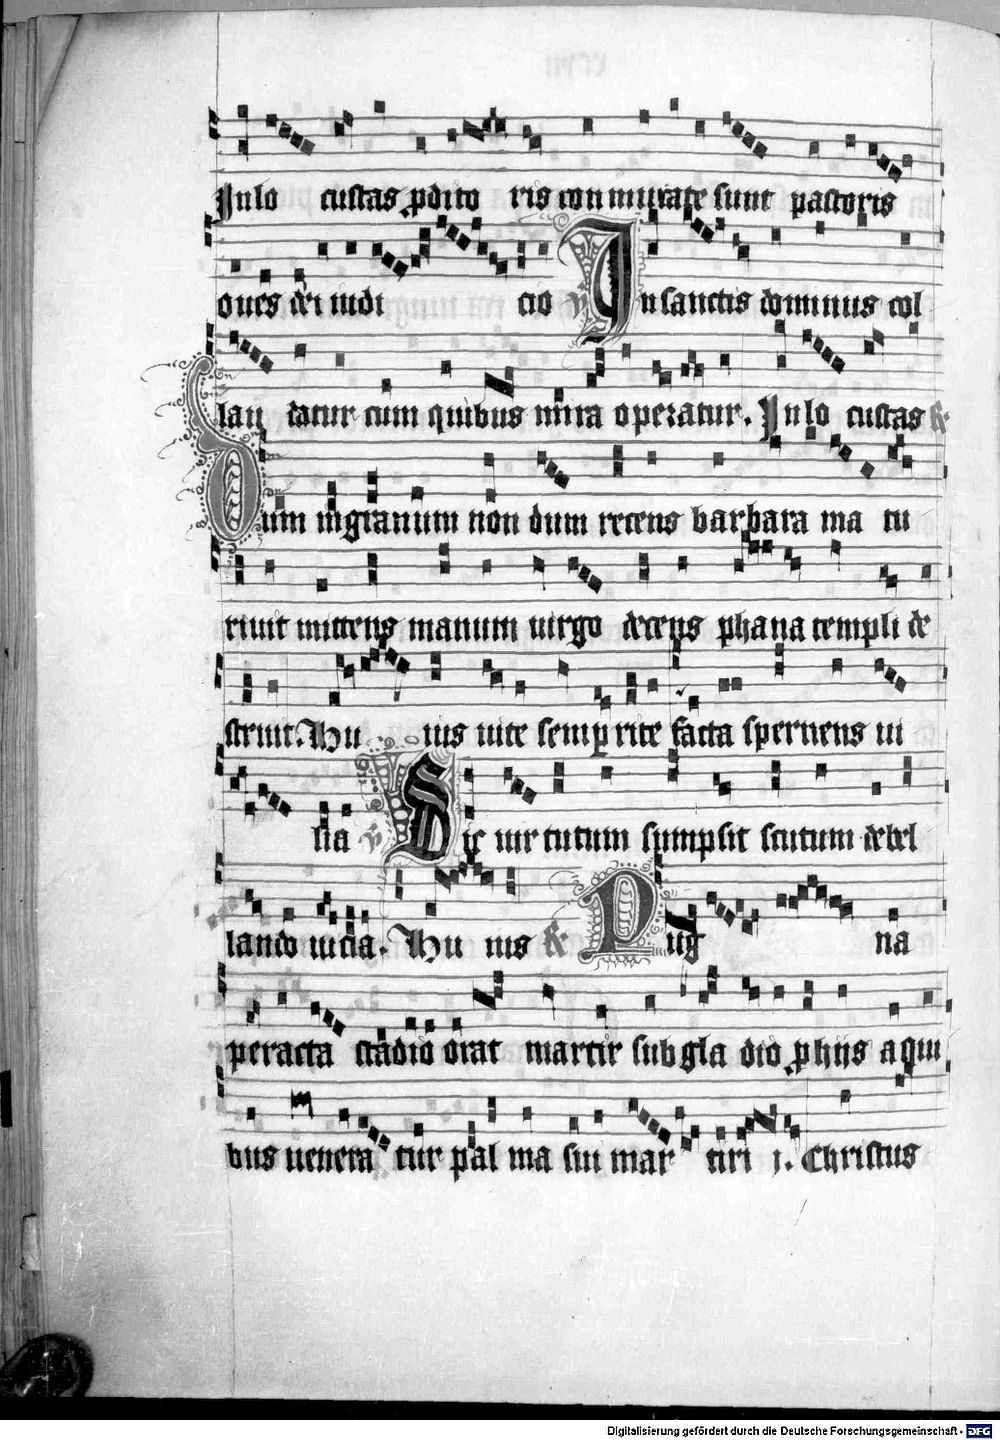 In lo custas pdito ris con mutate sunt pastoris
oues dei iudi cio v In sanctis dominus col
lau datur cum quibus mira operatur. In lo custas &
Dum ingranum non dum recens barbara ma tu
riuit mittens manum uirgo decens phana templi de
struit. Hu ius uite semp rite facta spernens ui
lia v Sic uir tutum sumpsit scutum debel
lando uicia. Hu ius & Pug na
peracta stadio orat martir sub gla dio phijs a qui
bus uenera tur pal ma sui mar tiri j. Christus
Digitalisierung gefördert durch die Deutsche Forschungsgemeinschaft - DFG